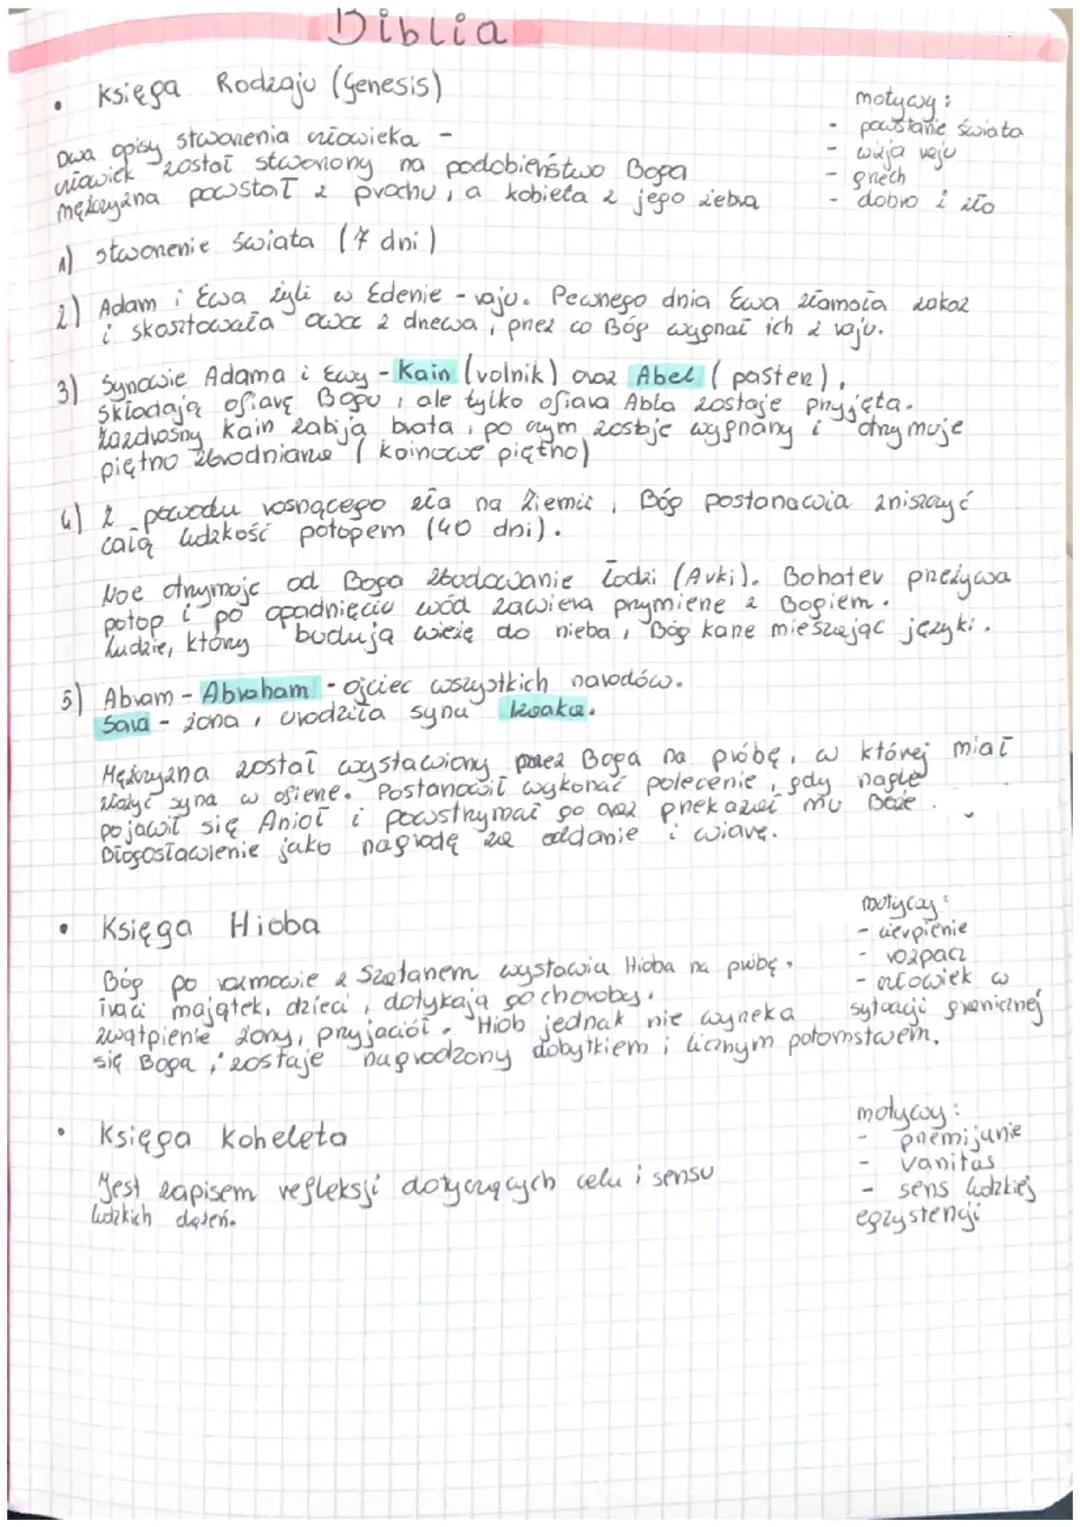 Biblia
• Księga Rodzaju (Genesis)
motywy:
- powstanie świata
- wizja raju
- grzech
- dobro i zło
Dwa opisy stworzenia człowieka -
człowiek został stworzony na podobieństwo Boga
mężczyzna powstał z prochu, a kobieta z jego żebra
1) stworzenie świata (7 dni)
2) Adam i Ewa żyli w Edenie - raju. Pewnego dnia Ewa złamała zakaz
i skosztowała owoc z drzewa, przez co Bóg wygnał ich z raju.
3) Synowie Adama i Ewy - Kain (rolnik) oraz Abel (pasterz),
składają ofiarę Bogu, ale tylko ofiara Abla zostaje przyjęta.
Zazdrosny Kain zabija brata, po czym zostaje wygnany i otrzymuje
piętno zbrodniarza (kainowe piętno)
4) Z powodu rosnącego zła na Ziemii, Bóg postanawia zniszczyć
całą ludzkość potopem (40 dni).
Noe otrzymaje od Boga zbudowanie łodzi (Arki). Bohater przeżywa
potop i po opadnięciu wód zawiera przymierze z Bogiem.
Ludzie, którzy budują wieżę do nieba, Bóg karze mieszając języki.
5) Abram - Abraham - ojciec wszystkich narodów.
Sara - żona, urodziła synu Izaaka.
Mężczyzna został wystawiony przez Boga na próbę, w której miał
złożyć syna w ofierze. Postanowił wykonać polecenie, gdy nagle
pojawił się Anioł i powstrzymał go oraz przekazał mu Boże
Błogosławienie jako nagrodę za oddanie i wiarę.
• Księga Hioba
motywy:
- cierpienie
- rozpacz
- człowiek w
sytuacji granicznej
Bóg po rozmowie z Szatanem wystawia Hioba na próbę,
traci majątek, dzieci, dotykają go choroby,
zwątpienie żony, przyjaciół. Hiob jednak nie wyrzeka
się Boga i zostaje nagrodzony dobytkiem i licznym potomstwem.
• Księga Koheleta
motywy:
- przemijanie
- vanitas
- sens ludzkiej
egzystencji
Jest zapisem refleksji dotyczących celu i sensu
ludzkich dążeń.